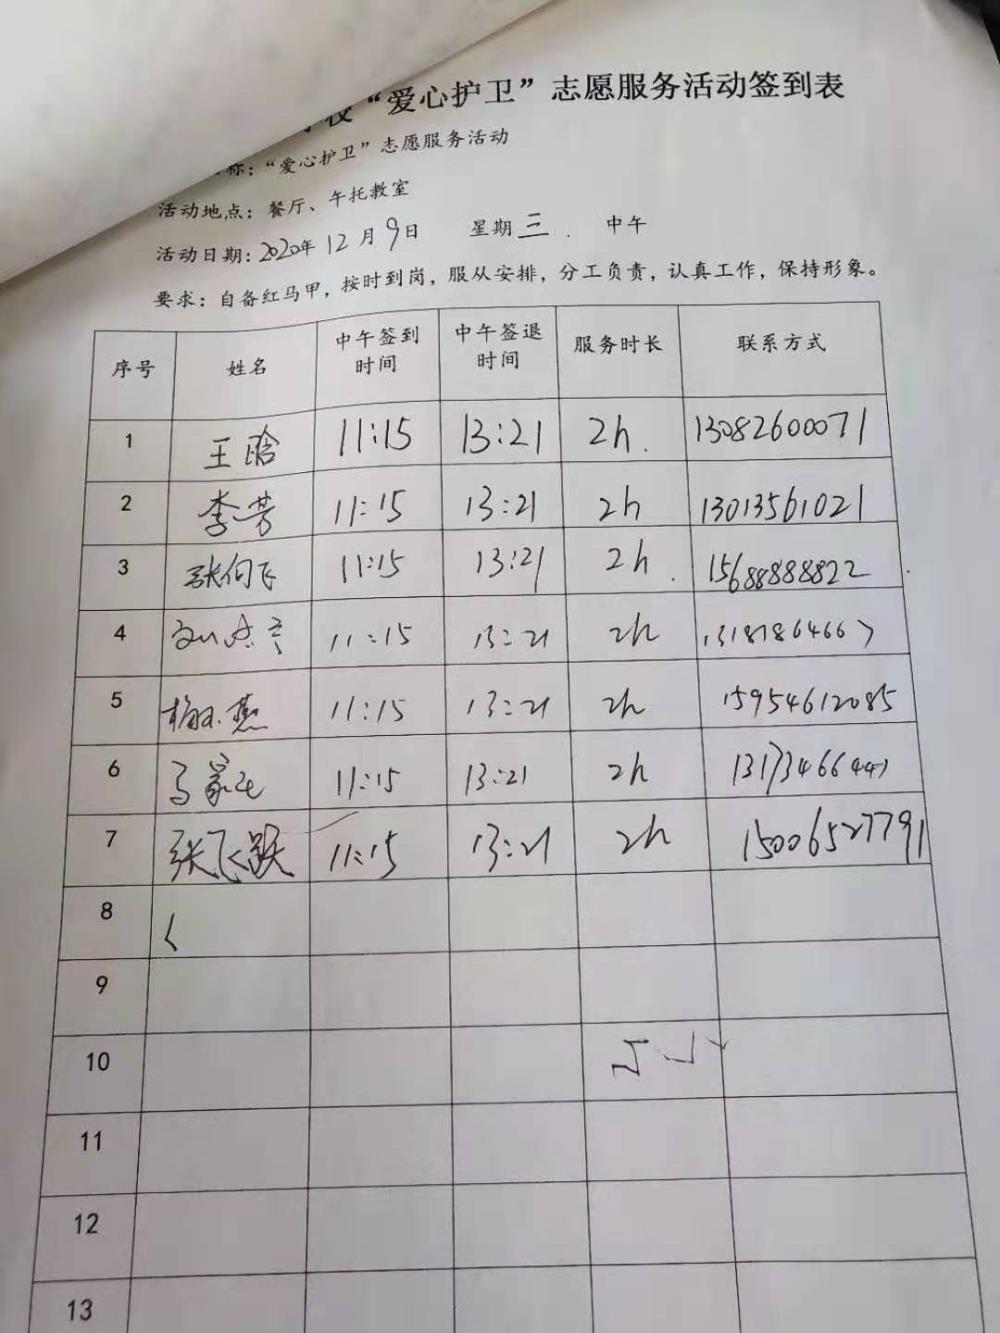 校“爱心护卫”志愿服务活动签到表
称：“爱心护卫”志愿服务活动
活动地点：餐厅、午托教室
活动日期：2020年12月9日 星期三. 中午
要求：自备红马甲，按时到岗，服从安排，分工负责，认真工作，保持形象。
序号 姓名 中午签到时间 中午签退时间 服务时长 联系方式
1 王晗 11:15 13:21 2h. 13082600071
2 李芳 11:15 13:21 2h 13013561021
3 张向飞 11:15 13:21 2h. 15688888822
4 11:15 13:21 2h 13181864667
5 燕 11:15 13:21 2h 15954612085
6 马 11:15 13:21 2h
7 张飞跃 11:15 13:21 2h 15006527791
8
9
10
11
12
13